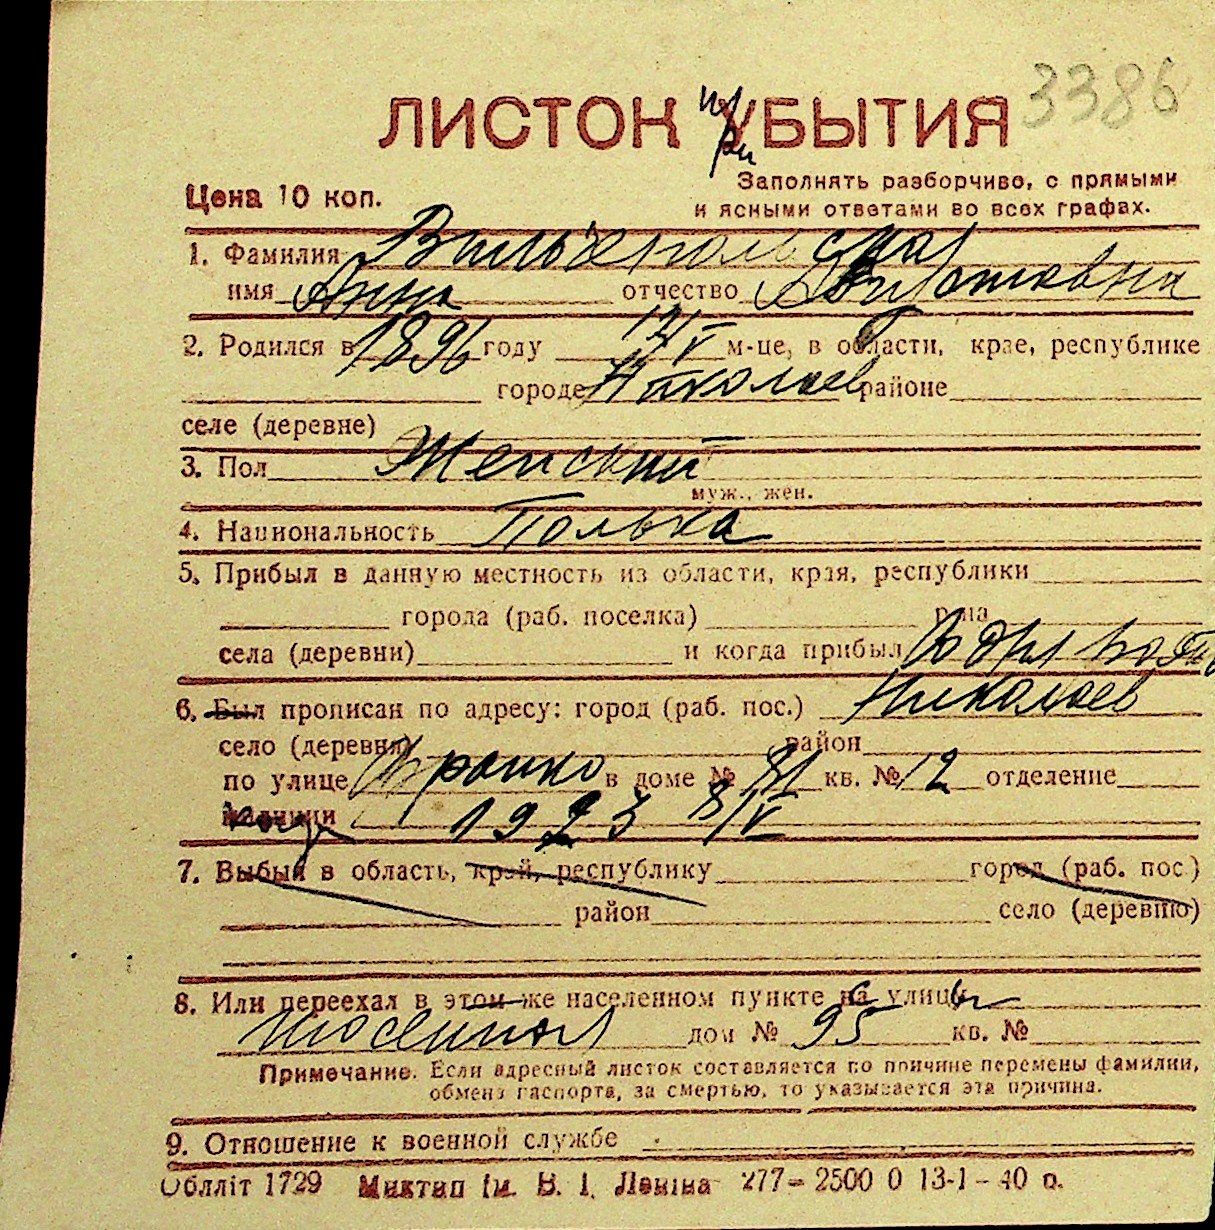 3386
ЛИСТОК при УБЫТИЯ
Цена 10 коп.
Заполнять разборчиво, с прямыми
и ясными ответами во всех графах.
1. Фамилия
имя Анна отчество
2. Родился в 1896 году 17/V м-це, в области, крае, республике
городе Николаев районе
селе (деревне)
3. Пол Женский
муж., жен.
4. Национальность Полька
5. Прибыл в данную местность из области, края, республики
города (раб. поселка) р-на
села (деревни) и когда прибыл
6. Был прописан по адресу: город (раб. пос.) Николаев
село (деревня) район
по улице Франко в доме № 81 кв. № 12 отделение
милиции 1923 8/V
7. Выбыл в область, край, республику город (раб. пос.)
район село (деревню)
8. Или переехал в этом же населенном пункте на улицу
дом № 95 кв. №
Примечание. Если адресный листок составляется по причине перемены фамилии,
обмена паспорта, за смертью, то указывается эта причина.
9. Отношение к военной службе
Облліт 1729 Миктип ім. В. І. Леніна 277— 2500 0 13-1 – 40 р.